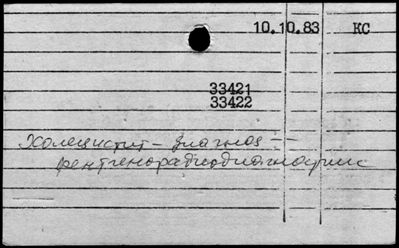 10.10.83 КС
33421
33422
Холецистит - диагноз -
рентгенорадиодиагностик